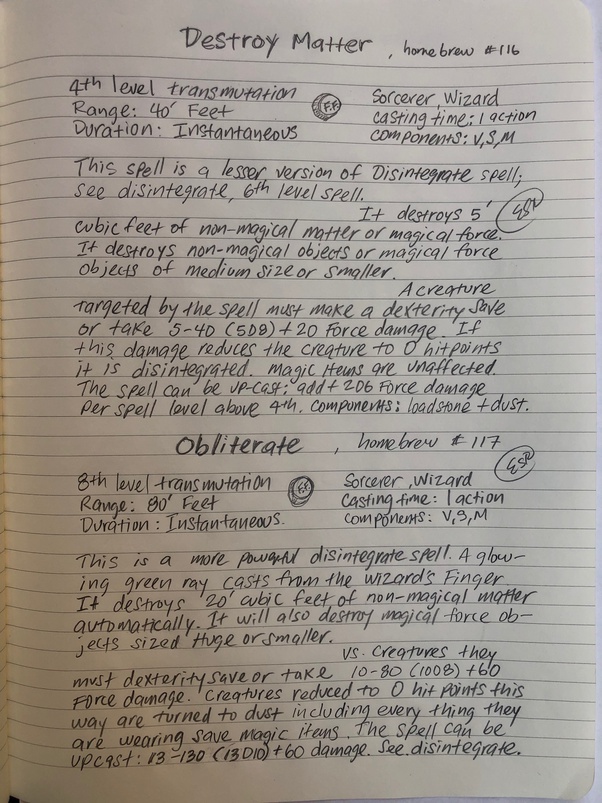 Destroy Matter, homebrew #116
4th level transmutation
Range: 40' Feet
Duration: Instantaneous
F.F.
Sorcerer, Wizard
casting time: 1 action
components: V,S,M
This spell is a lesser version of Disintegrate spell;
see disintegrate, 6th level spell.
It destroys 5'
cubic feet of non-magical matter or magical force.
It destroys non-magical objects or magical force
objects of medium size or smaller.
A creature
targeted by the spell must make a dexterity save
or take 5-40 (5D8) + 20 Force damage. If
this damage reduces the creature to 0 hitpoints
it is disintegrated. Magic items are unaffected.
The spell can be up-cast: add + 2D6 Force damage
per spell level above 4th. components: loadstone + dust.
Obliterate, homebrew #117
8th level transmutation
Range: 80' Feet
Duration: Instantaneous.
F.F.
Sorcerer, Wizard
Casting time: 1 action
components: V,S,M
This is a more powerful disintegrate spell. A glow-
ing green ray casts from the wizard's Finger
It destroys 20' cubic feet of non-magical matter
automatically. It will also destroy magical force ob-
jects sized Huge or smaller.
Vs. Creatures they
must dexterity save or take 10-80 (10D8) +60
Force damage. Creatures reduced to 0 hit points this
way are turned to dust including every thing they
are wearing save magic items. The spell can be
upcast: 13-130 (13D10) +60 damage. See disintegrate.